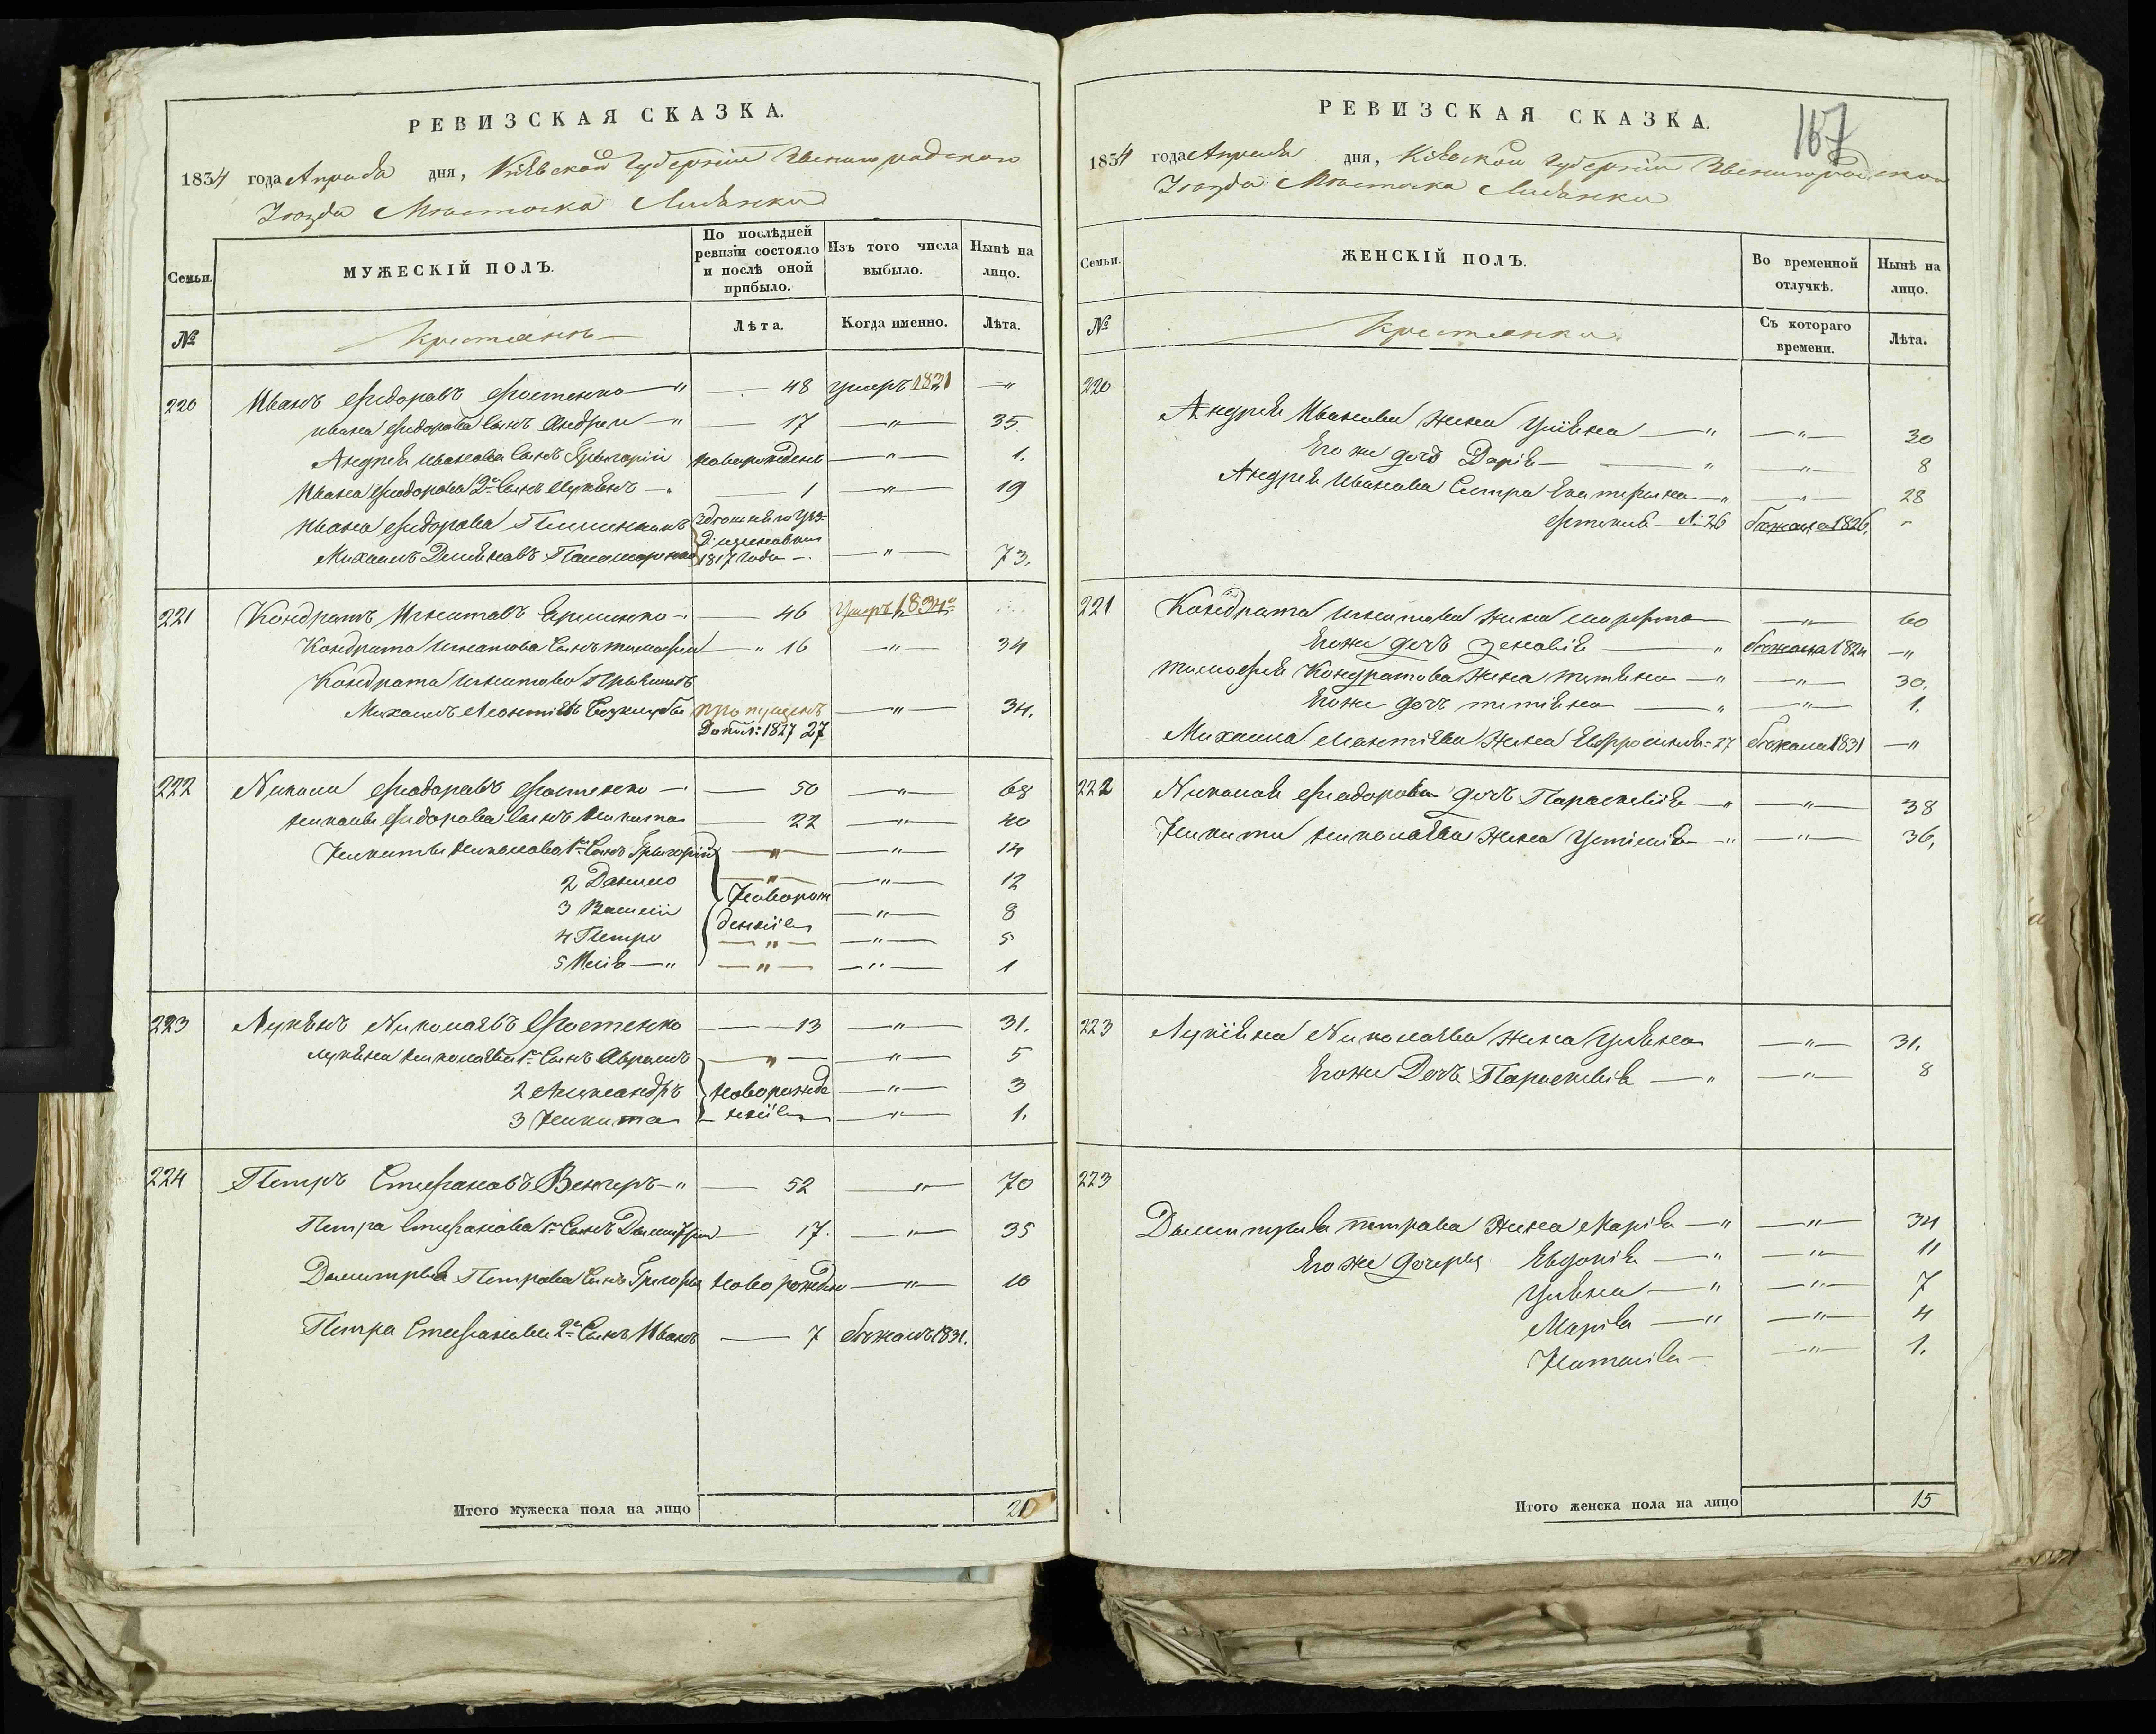 РЕВИЗСКАЯ СКАЗКА.
1834 года Апреля дня, Кіевской Губерніи Звенигородскаго
Уезда Местечка Лисянки
Семьи.
МУЖЕСКІЙ ПОЛЪ.
По послѣдней ревизіи состояло и послѣ оной прибыло.
Изъ того числа выбыло.
Нынѣ на лицо.
№
Крестьянъ
Лѣта.
Когда именно.
Лѣта.
220 Иванъ Федоровъ 48 умеръ 1821 — " —
Ивана Федорова Сынъ Андрей — " — 17 — " — 35.
Андрея Иванова Сынъ Григорій новорожденъ — " — 1.
Ивана Федорова 2й Сынъ Лукянъ — 1 — " — 19
Ивана Федорова
Михаилъ 1817 года — " — 73.
221 Кондратъ Игнатовъ 46 Умеръ 1834
Кондрата Игнатова Сынъ Тимофей — " 16 — " — 34
Кондрата Игнатова
Михаилъ Леонтіевъ пропущенъ — " — 34.
1827 27
222 Николай Федоровъ — 50 — " — 68
Николая Федорова Сынъ Никита — 22 — " — 40
Никиты Николаева 1й Сынъ Григорій — " — — " — 14
2 Данило — " — — " — 12
3 Василій Новорож — " — 8
4 Петро денніи — " — 5
5 Илія — " — " — — " — 1
223 Лукянъ Николаевъ — 13 — " — 31.
Лукяна Николаева 1й Сынъ Аврамъ — " — — " — 5
2 Александръ Новорожде — " — 3
3 Никита нніи — " — 1.
224 Петръ Стефановъ Венгеръ — " — 52 — " — 70
Петра Стефанова 1й Сынъ Дмитрій — 17. — " — 35
Дмитрія Петрова Сынъ Григорій новорожден — " — 10
Петра Стефанова 2й Сынъ Иванъ — 7 бежалъ 1831.
Итого мужеска пола на лицо 20
167
РЕВИЗСКАЯ СКАЗКА.
1834 года Апреля дня, Кіевской Губерніи Звенигородскаго
Уезда Местечка Лисянки
Семьи.
ЖЕНСКІЙ ПОЛЪ.
Во временной отлучкѣ.
Нынѣ на лицо.
№
Крестьянки.
Съ котораго времени.
Лѣта.
220
Андрея Иванова Жена Уліяна — " — " — 30
Его же дочь Дарія — " — " — 8
Андрея Иванова Сестра Екатерина — " — " — 28
26 бежала 1826. "
221 Кондрата Игнатова Жена Марфа — " — 60
Егоже дочь Зеновія — " бежала 1824 — "
Тимофея Кондратова Жена Татіяна — " — " — 30.
Егоже дочь Татіяна — " — " — 1.
Михаила Леонтіева Жена Евфросинія 27 бежала 1831 — "
222 Николая Федорова дочь Параскевія — " — " — 38
Никиты Николаева Жена Устинія — " — " — 36.
223 Лукіяна Николаева Жена Уляна — " — 31.
Егоже Дочь Параскевія — " — " — 8
223
Дмитрія Петрова Жена Марія — " — " — 34
Его же Дочерья Евдокія — " — " — 11
Уляна — " — " — 7
Марія — " — " — 4
Наталія — — " — 1.
Итого женска пола на лицо 15